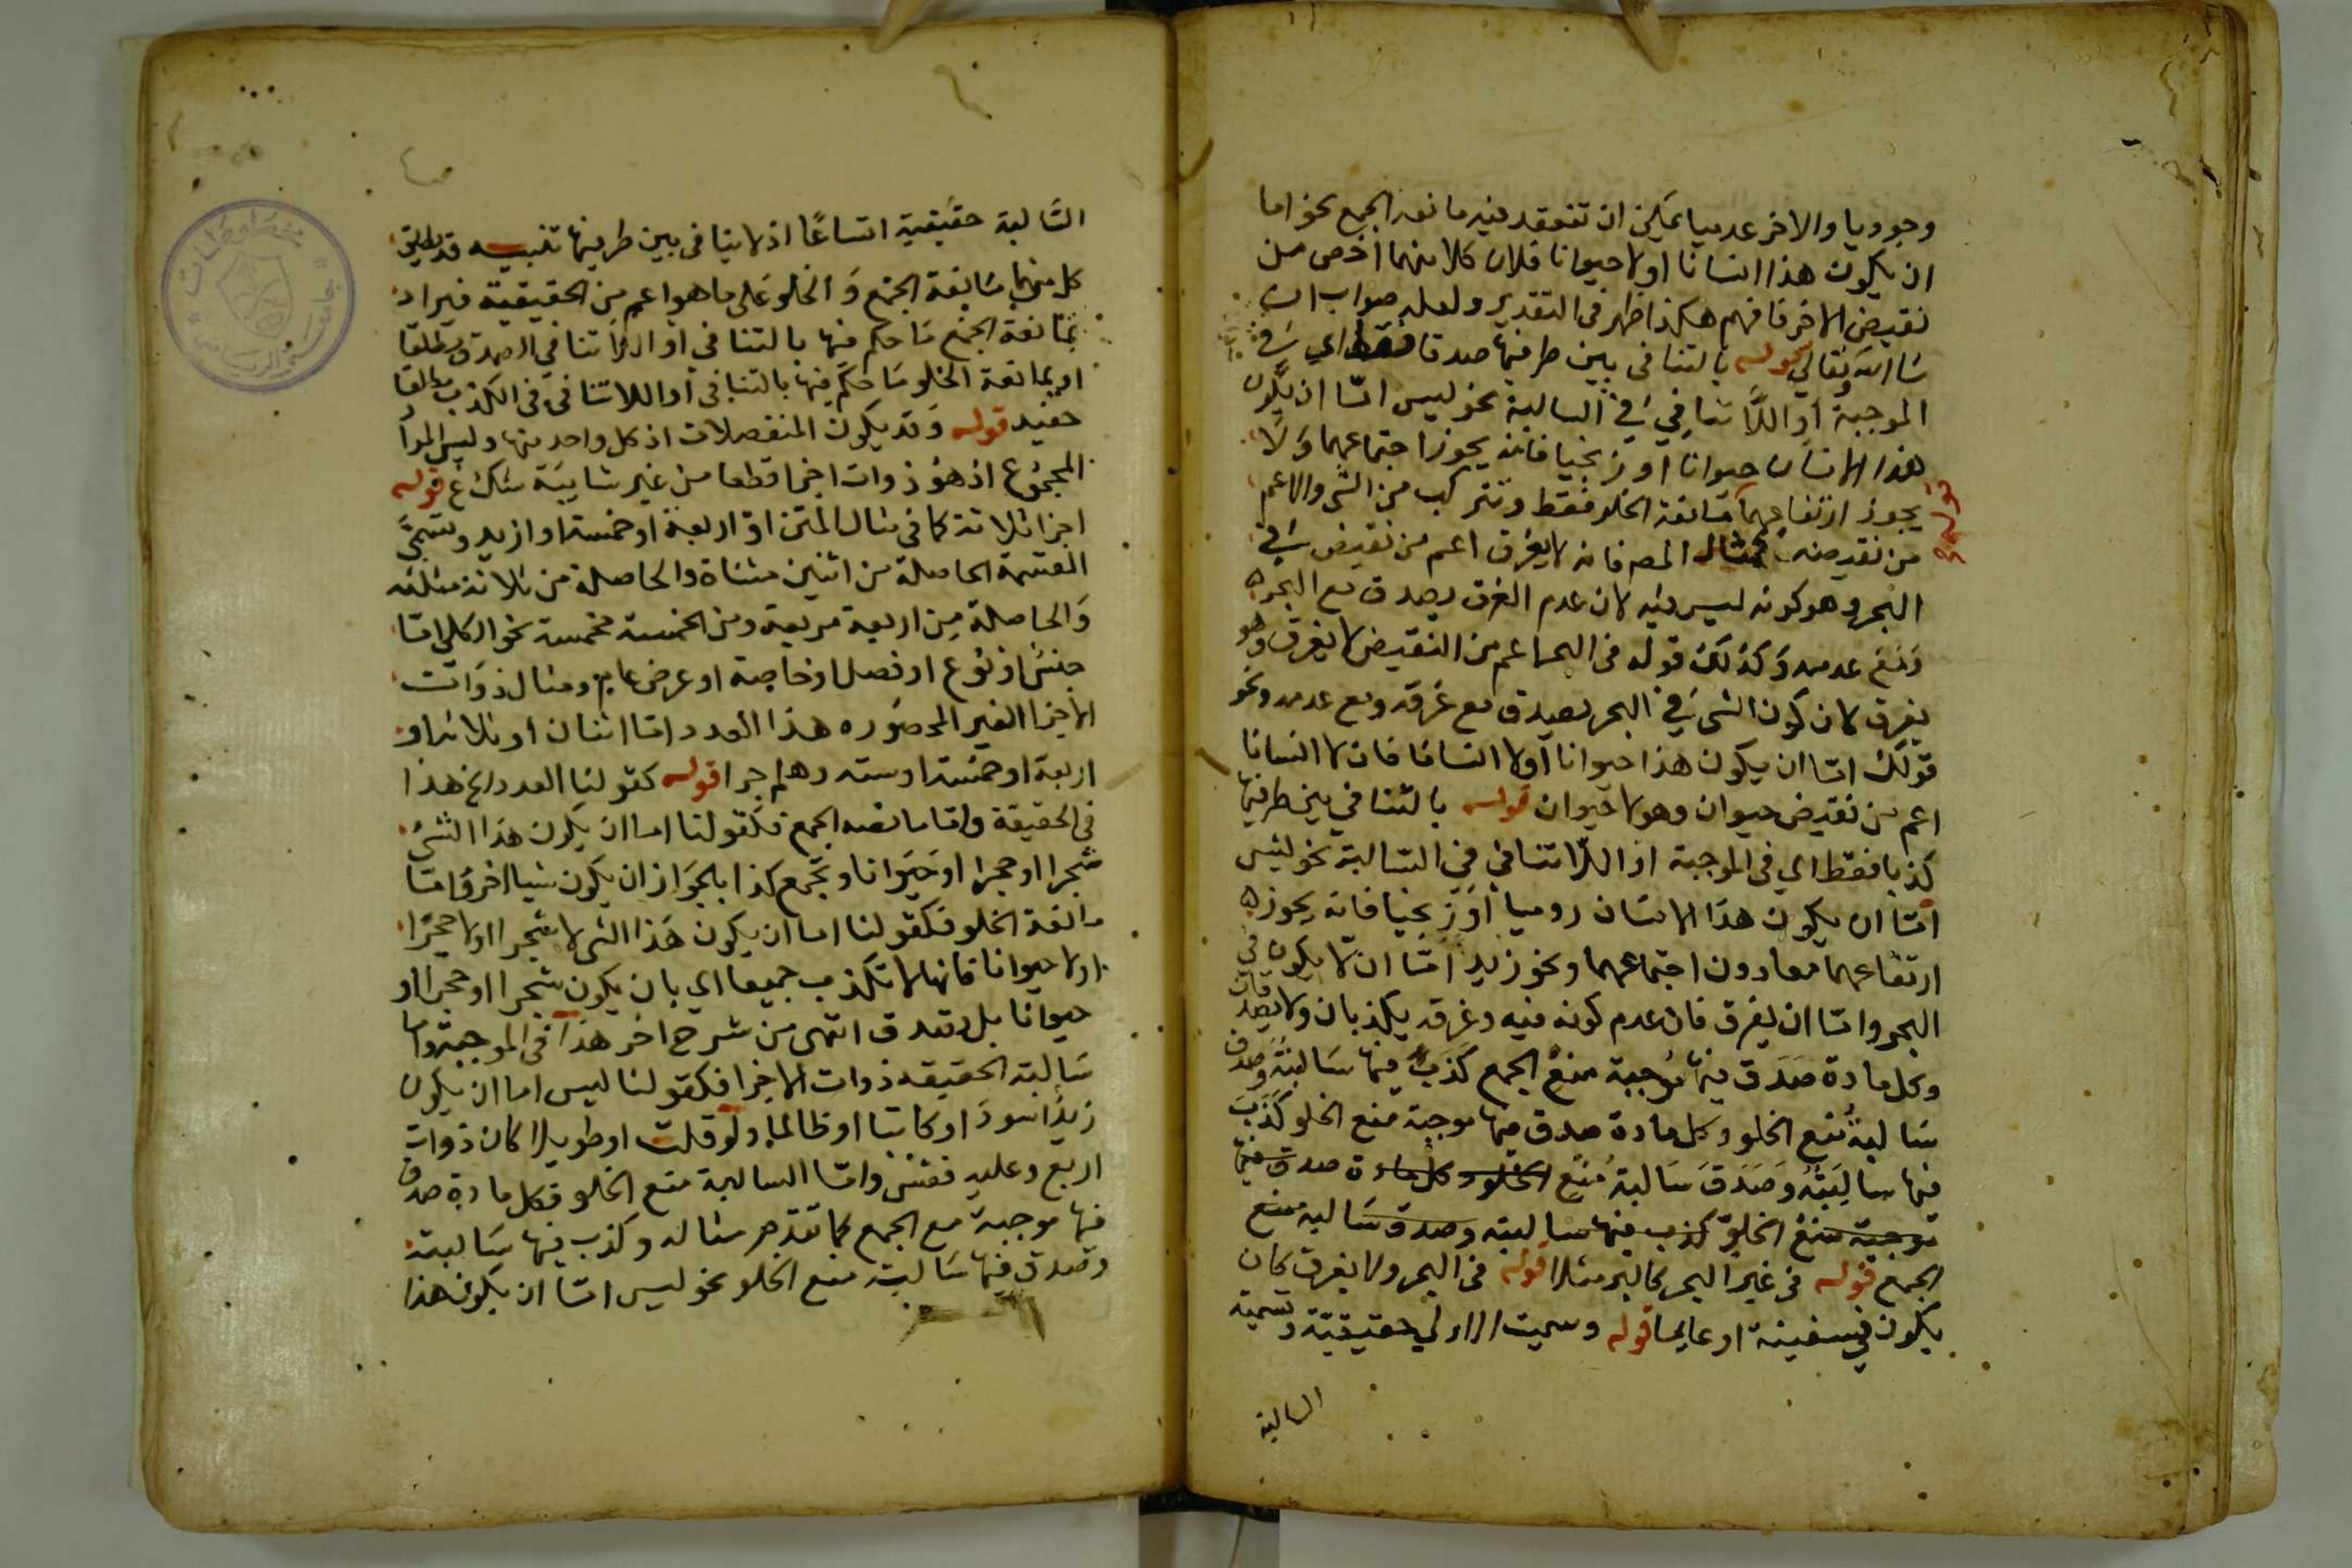 وجوديا والاخر عدميا يمكن ان تنعقد منه مانعة الجمع نحو اما
ان يكون هذا انسانا او لا حيوانا فلان كلا منهما اخص من
نقيض الاخر فافهم هكذا ظهر فى التقدير ولعله صواب ان
شا الله تعالي قوله بالتنافى بين طرفيها صدقا فقط اي في
الموجبة او اللاتنافي في السالبة نحو ليس امّا ان يكون
هذا الانسان حيوانا او زنجيا فانه يجوز اجتماعهما ولا
يجوز ارتفاعهما قوله مانعة الخلو فقط وتتركب من الشي والاعم
من نقيضه كمثال المصـ فان لا يغرق اعم من نقيض في
البحر وهو كونه ليس فيه لان عدم الغرق يصدق مع البحر
ومع عدمه وكذلك قوله فى البحر اعم من النقيض لا يغرق وهو
يغرق لان كون الشي في البحر يصدق مع غرقه ومع عدمه ونحو
قولك امّا ان يكون هذا حيوانا او لا انسانا فان لا انسانا
اعم من نقيض حيوان وهو لا حيوان قوله بالتنافي بين طرفيها
كذبا فقط اي فى الموجبة او اللاتنافى فى السالبة نحو ليس
امّا ان يكون هذا الانسان روميا او زنجيا فانه يجوز
ارتفاعهما معا دون اجتماعهما ونحو زيد امّا ان لا يكون في
البحر وامّا ان يغرق فان عدم كونه فيه وغرقه يكذبان ولا يصدقان
وكل مادة صدق فيها موجبة منع الجمع كذب فيها سالبته وصدق
سالبة منع الخلو وكل مادة صدق فيها موجبة منع الخلو كذب
فيها سالبته وصدق سالبة منع الخلو وكل مادة صدق فيها
موجبة منع الخلو كذب فيها سالبته وصدق سالبة منع
الجمع قوله فى غير البحر كالبر مثلا قوله فى البحر ولا يغرق كان
يكون في سفينة او عايما قوله وسميت الاولي حقيقية وتسمية
السالبة
السّالبة حقيقية اتساعًا اذ لا يتنافى بين طرفيها تنبيه قد يطلق
كل منهما مانعة الجمع والخلو على ما هو اعم من الحقيقية فيراد
بمانعة الجمع ما حكم فيها بالتنافي او اللاتنافي في الصدق مطلقا
او بمانعة الخلو ما حكم فيها بالتنافى او اللاتنافى فى الكذب مطلقا
حفيد قوله وقد يكون المنفصلات اذ كل واحد منها وليس المراد
المجموع اذ هو ذوات اجزا قطعا من غير شايبة شك ع قوله
اجزا ثلاثة كما فى مثال المتن او اربعة او خمسة او ازيد وتسمي
القسمة الحاصلة من اثنين مثناة والحاصلة من ثلاثة مثلثه
والحاصلة من اربعة مربعة ومن الخمسة مخمسة نحو الكلي امّا
جنس او نوع او فصل او خاصة او عرض عام ومثال ذوات
الاجزا الغير المحصوره هذا العدد امّا اثنان او ثلاثة او
اربعة او خمسة او سته وهلم جرا قوله كقولنا العدد الخ هذا
فى الحقيقة وامّا مانعة الجمع فكقولنا اما ان يكون هذا الشي
شجرا او حجرا او حيوانا وتجمع كذا بالجواز ان يكون شيا اخر وامّا
مانعة الخلو فكقولنا اما ان يكون هذا الشي لا شجرا او لا حجرًا
او لا حيوانا فانها لا تكذب جميعا اي بان يكون شجرا او حجرا او
حيوانا بل تصدق انتهى من شرح اخر هذا فى الموجبة واما
سالبة الحقيقه ذوات الاجزا فكقولنا ليس اما ان يكون
زيد اسود او كاتبا او ظالما ولو قلت او طويلا كان ذوات
اربع وعليه فقس وامّا السالبة منع الخلو فكل مادة صدق
فيها موجبة مع الجمع كما تقدم مثاله وكذب فيها سالبته
وصدق فيها سالبة منع الخلو نحو ليس امّا ان يكون هذا